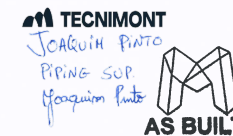 TECNIMONT
JOAQUIM PINTO
PIPING SUP.
Joaquim Pinto
AS BUIL